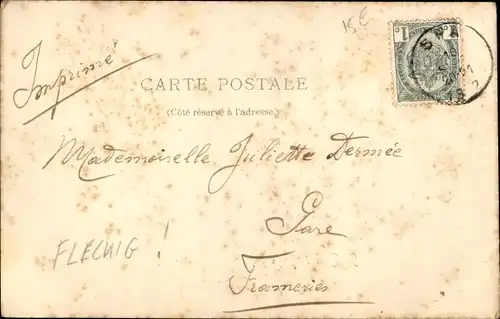 Imprimé
1 1
SPA
CARTE POSTALE
(Côté réservé à l'adresse.)
Mademoiselle Juliette Dermée
Gare
FLECHIG !
Frameries